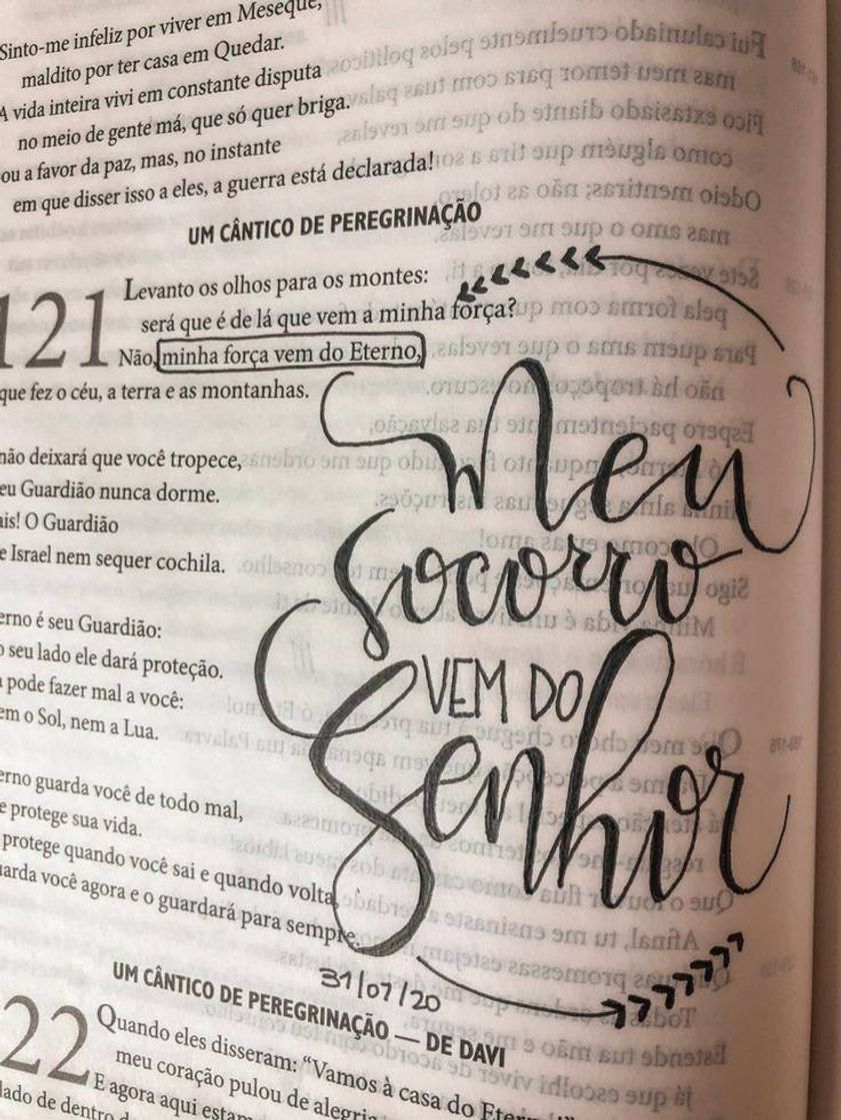 Sinto-me infeliz por viver em Meseque,
maldito por ter casa em Quedar.
A vida inteira vivi em constante disputa
no meio de gente má, que só quer briga.
ou a favor da paz, mas, no instante
em que disser isso a eles, a guerra está declarada!
UM CÂNTICO DE PEREGRINAÇÃO
121 Levanto os olhos para os montes:
será que é de lá que vem a minha força?
Não, minha força vem do Eterno,
que fez o céu, a terra e as montanhas.
não deixará que você tropece,
eu Guardião nunca dorme.
ais! O Guardião
e Israel nem sequer cochila.
erno é seu Guardião:
o seu lado ele dará proteção.
pode fazer mal a você:
em o Sol, nem a Lua.
erno guarda você de todo mal,
e protege sua vida.
protege quando você sai e quando volta,
uarda você agora e o guardará para sempre.
Meu
Socorro
VEM DO
Senhor
31/07/20
UM CÂNTICO DE PEREGRINAÇÃO — DE DAVI
22 Quando eles disseram: “Vamos à casa do Eterno!”
meu coração pulou de alegria
E agora aqui estam
lado de dentro d